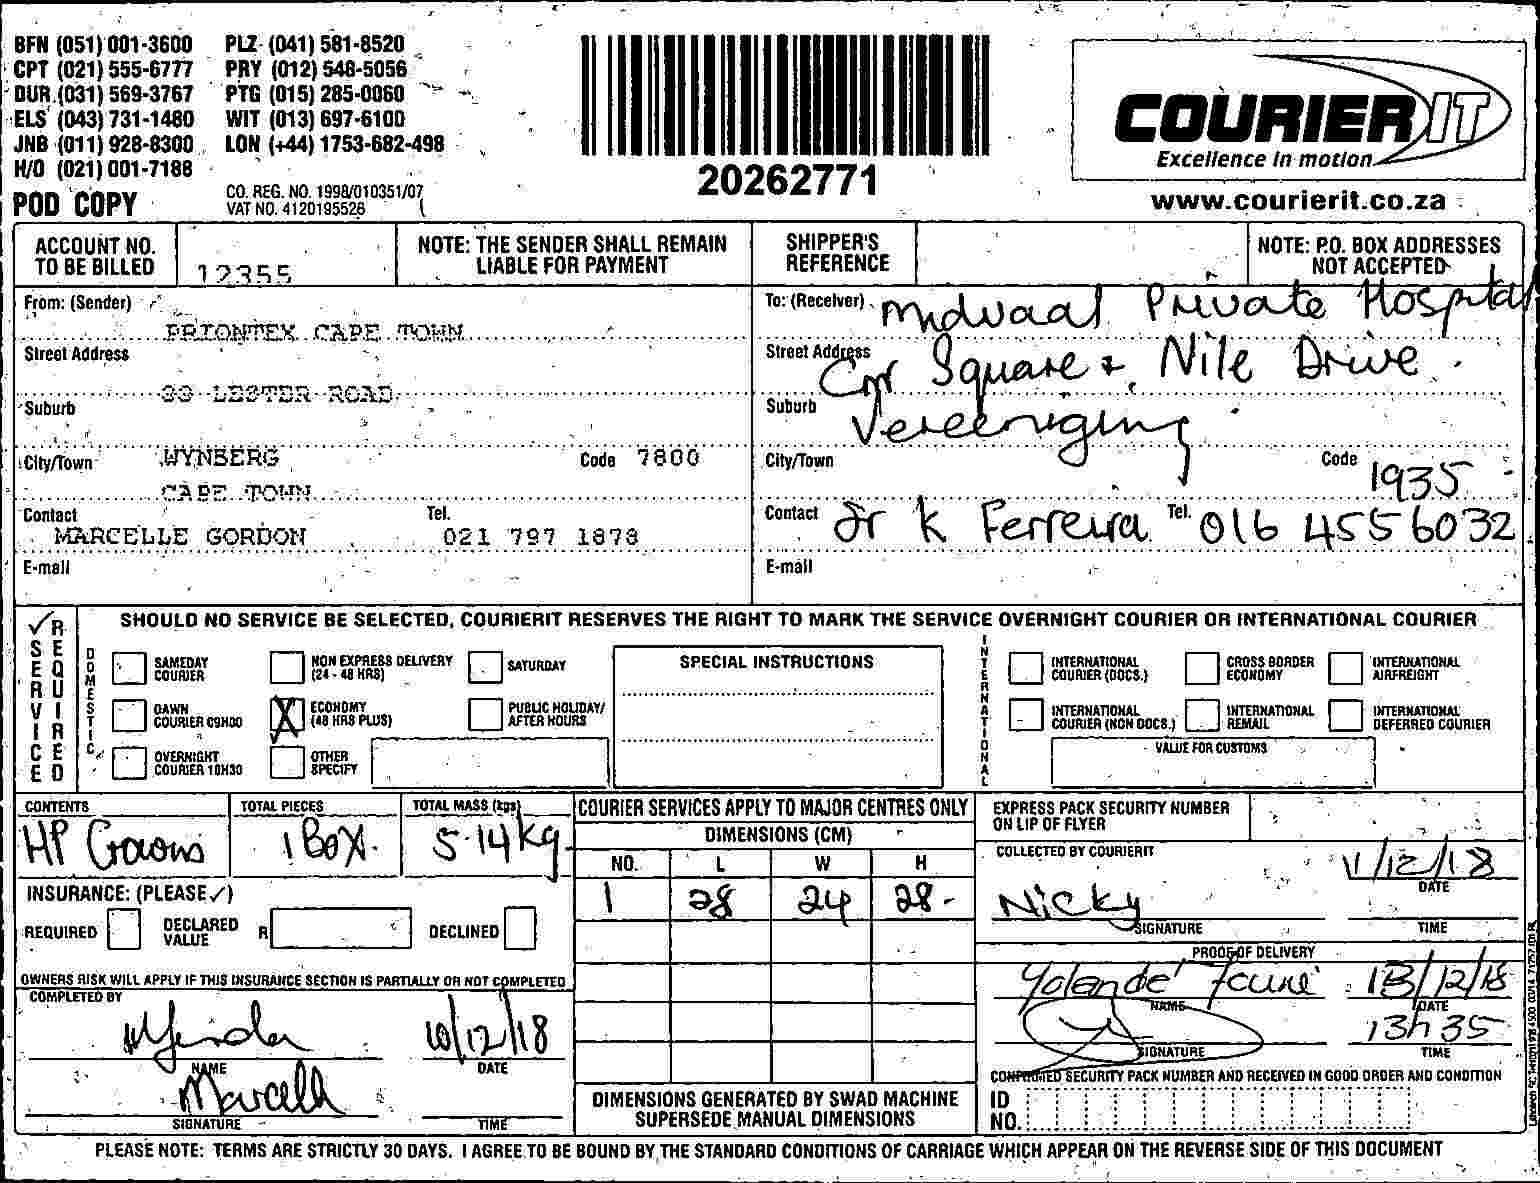 BFN (051) 001-3600 PLZ (041) 581-8520
CPT (021) 555-6777 PRY (012) 548-5056
DUR (031) 569-3767 PTG (015) 285-0060
ELS (043) 731-1480 WIT (013) 697-6100
JNB (011) 928-8300 LON (+44) 1753-682-498
H/O (021) 001-7188
POD COPY
CO. REG. NO. 1998/010351/07
VAT NO. 4120195526
20262771
COURIER IT
Excellence in motion
www.courierit.co.za
ACCOUNT NO. TO BE BILLED 12355
NOTE: THE SENDER SHALL REMAIN LIABLE FOR PAYMENT
SHIPPER'S REFERENCE
NOTE: P.O. BOX ADDRESSES NOT ACCEPTED
From: (Sender)
PRIONTEX CAPE TOWN
Street Address
LESTER ROAD
Suburb
City/Town WYNBERG Code 7800
CAPE TOWN
Contact Tel.
MARCELLE GORDON 021 797 1878
E-mail
To: (Receiver) Midvaal Private Hospital
Street Address Cnr Square + Nile Drive
Suburb Vereeniging
City/Town Code 1935
Contact Sr K Ferreira Tel. 016 4556032
E-mail
SERVICE REQUIRED
SHOULD NO SERVICE BE SELECTED, COURIERIT RESERVES THE RIGHT TO MARK THE SERVICE OVERNIGHT COURIER OR INTERNATIONAL COURIER
DOMESTIC
SAMEDAY COURIER
NON EXPRESS DELIVERY (24 - 48 HRS)
SATURDAY
DAWN COURIER 09H00
X ECONOMY (48 HRS PLUS)
PUBLIC HOLIDAY/ AFTER HOURS
OVERNIGHT COURIER 10H30
OTHER SPECIFY
SPECIAL INSTRUCTIONS
INTERNATIONAL
INTERNATIONAL COURIER (DOCS.)
CROSS BORDER ECONOMY
INTERNATIONAL AIRFREIGHT
INTERNATIONAL COURIER (NON DOCS.)
INTERNATIONAL REMAIL
INTERNATIONAL DEFERRED COURIER
VALUE FOR CUSTOMS
CONTENTS TOTAL PIECES TOTAL MASS (kgs)
HP Gowns 1 Box. 5.14kg
INSURANCE: (PLEASE ✓)
REQUIRED DECLARED VALUE R DECLINED
OWNERS RISK WILL APPLY IF THIS INSURANCE SECTION IS PARTIALLY OR NOT COMPLETED
COMPLETED BY
10/12/18
NAME DATE
Marcelle
SIGNATURE TIME
COURIER SERVICES APPLY TO MAJOR CENTRES ONLY
DIMENSIONS (CM)
NO. L W H
1 28 24 28
DIMENSIONS GENERATED BY SWAD MACHINE SUPERSEDE MANUAL DIMENSIONS
EXPRESS PACK SECURITY NUMBER ON LIP OF FLYER
COLLECTED BY COURIERIT
11/12/18
DATE
Nicky
SIGNATURE TIME
PROOF OF DELIVERY
Yolande Founé 13/12/18
NAME DATE
13h35
SIGNATURE TIME
CONFIRMED SECURITY PACK NUMBER AND RECEIVED IN GOOD ORDER AND CONDITION
ID NO.
PLEASE NOTE: TERMS ARE STRICTLY 30 DAYS. I AGREE TO BE BOUND BY THE STANDARD CONDITIONS OF CARRIAGE WHICH APPEAR ON THE REVERSE SIDE OF THIS DOCUMENT